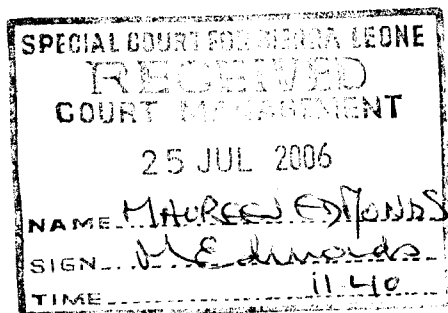 SPECIAL COURT FOR SIERRA LEONE
RECEIVED
COURT MANAGEMENT
25 JUL 2006
NAME MAUREEN EDMONDS
SIGN MEdmonds
TIME 11.40